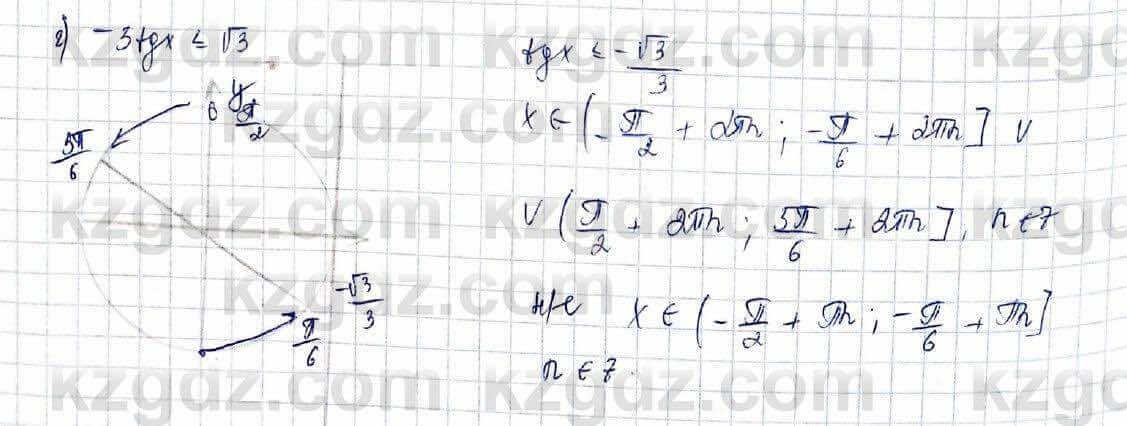 г) -3tgx ≤ √3
tgx ≤ -√3/3
x ∈ (-π/2 + 2πn ; -π/6 + 2πn] ∪
∪ (π/2 + 2πn ; 5π/6 + 2πn], n ∈ Z
т/е x ∈ (-π/2 + πn ; -π/6 + πn]
n ∈ Z.
y
π/2
5π/6
-√3/3
π/6
kzgdz.com
kzgdz.com
kzgdz.com
kzgdz.com
kzgdz.com
kzgdz.com
kzgdz.com
kzgdz.com